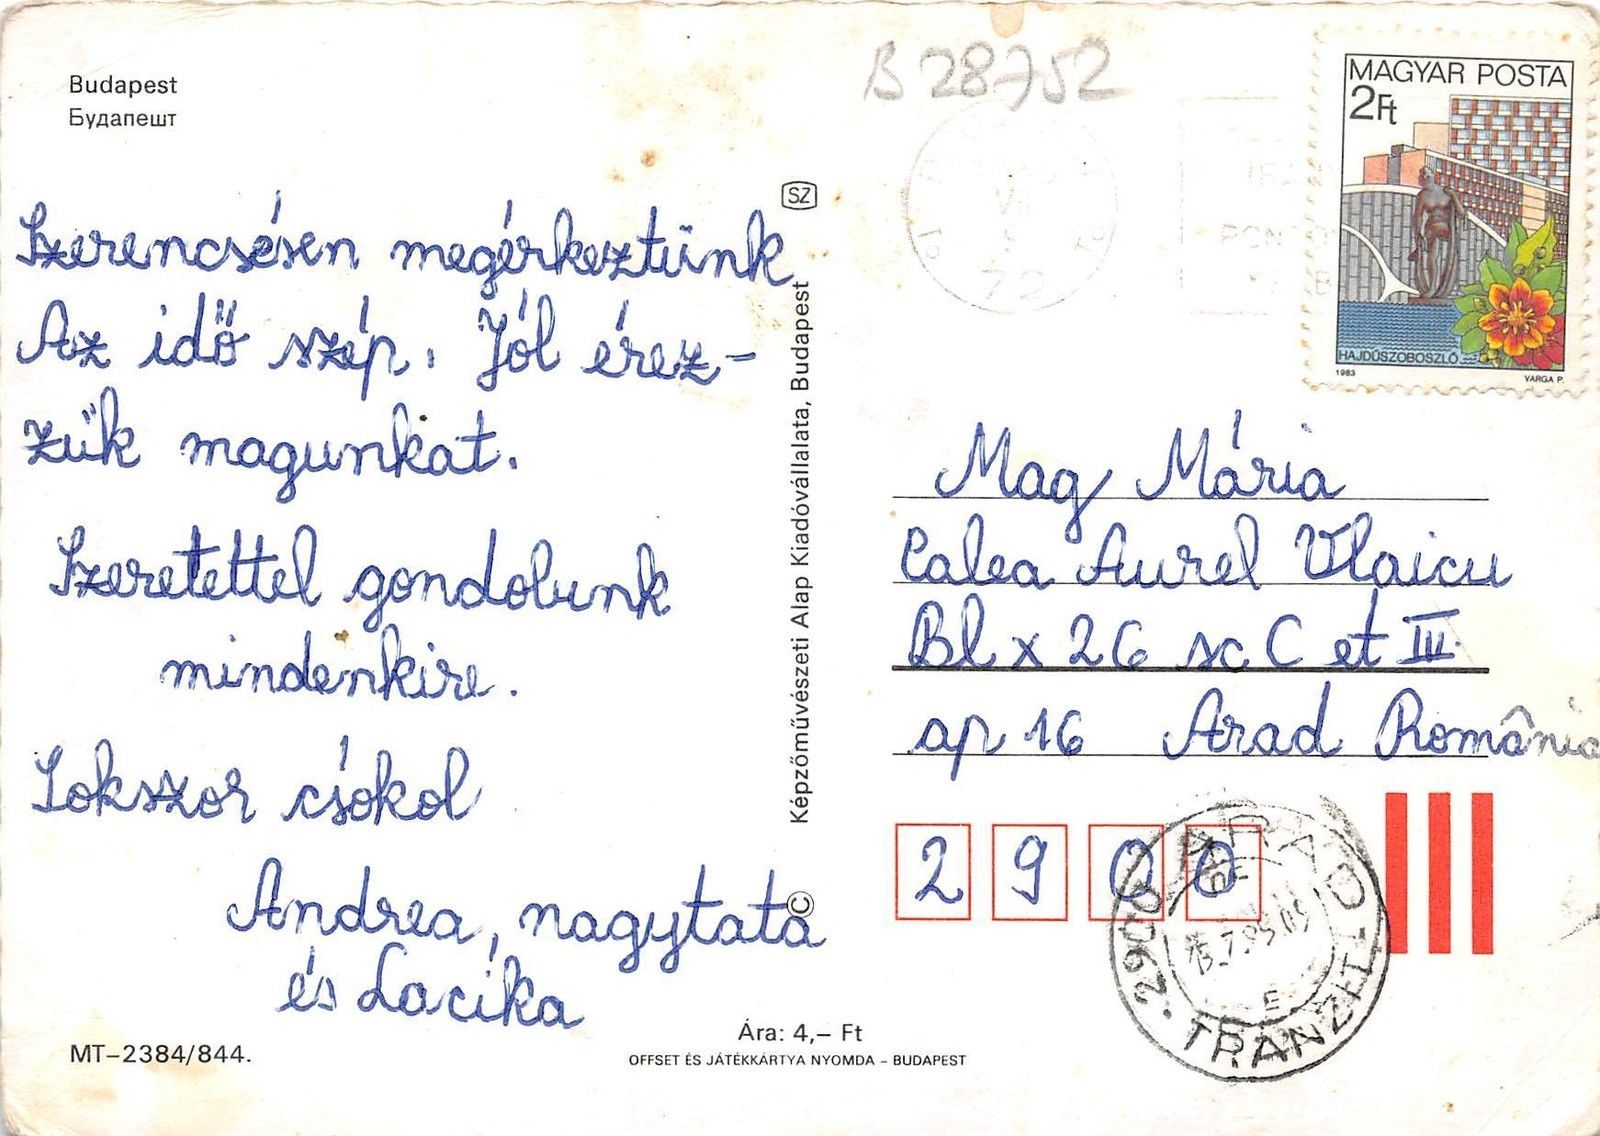 Budapest
Будапешт
B 28752
MAGYAR POSTA
2Ft
HAJDÚSZOBOSZLÓ
1983
VARGA P.
SZ
Szerencsésen megérkeztünk
Az idő szép. Jól érez-
zük magunkat.
Szeretettel gondolunk
mindenkire.
Sokszor csókol
Andrea, nagytata
és Lacika
Képzőművészeti Alap Kiadóvállalata, Budapest
©
Mag Mária
Calea Aurel Vlaicu
Bl x 26 sc C et III
ap 16 Arad România
2900
2900 ARAD
TRANZIT
E
MT–2384/844.
Ára: 4,– Ft
OFFSET ÉS JÁTÉKKÁRTYA NYOMDA – BUDAPEST